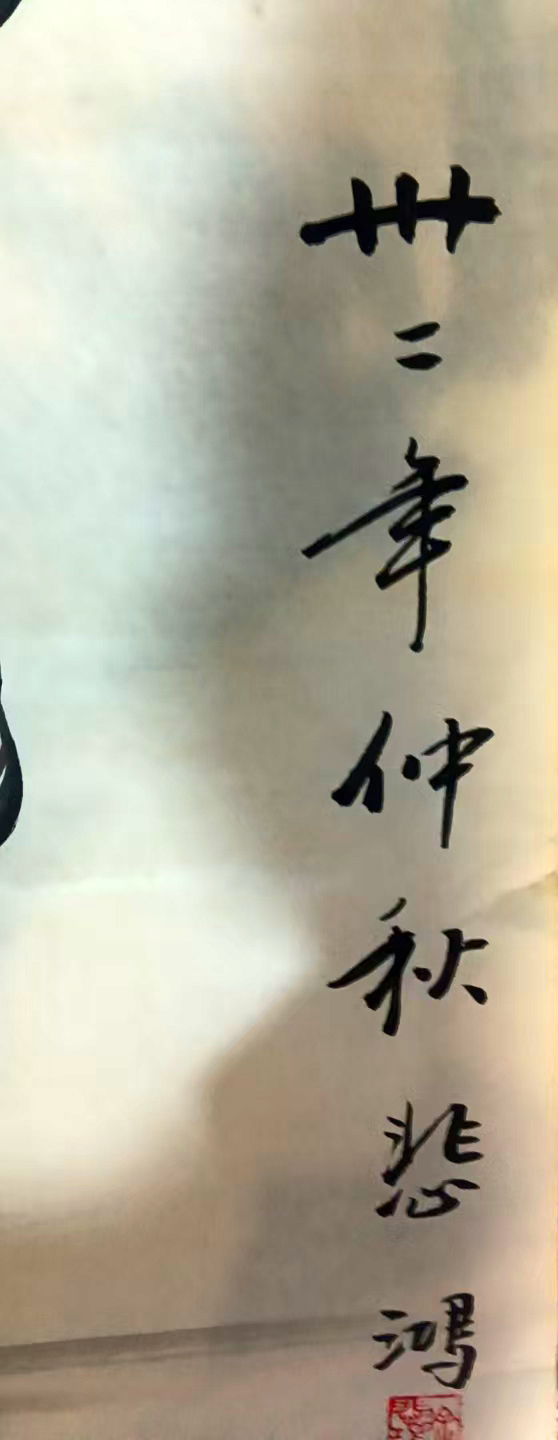 卅二年仲秋悲鸿